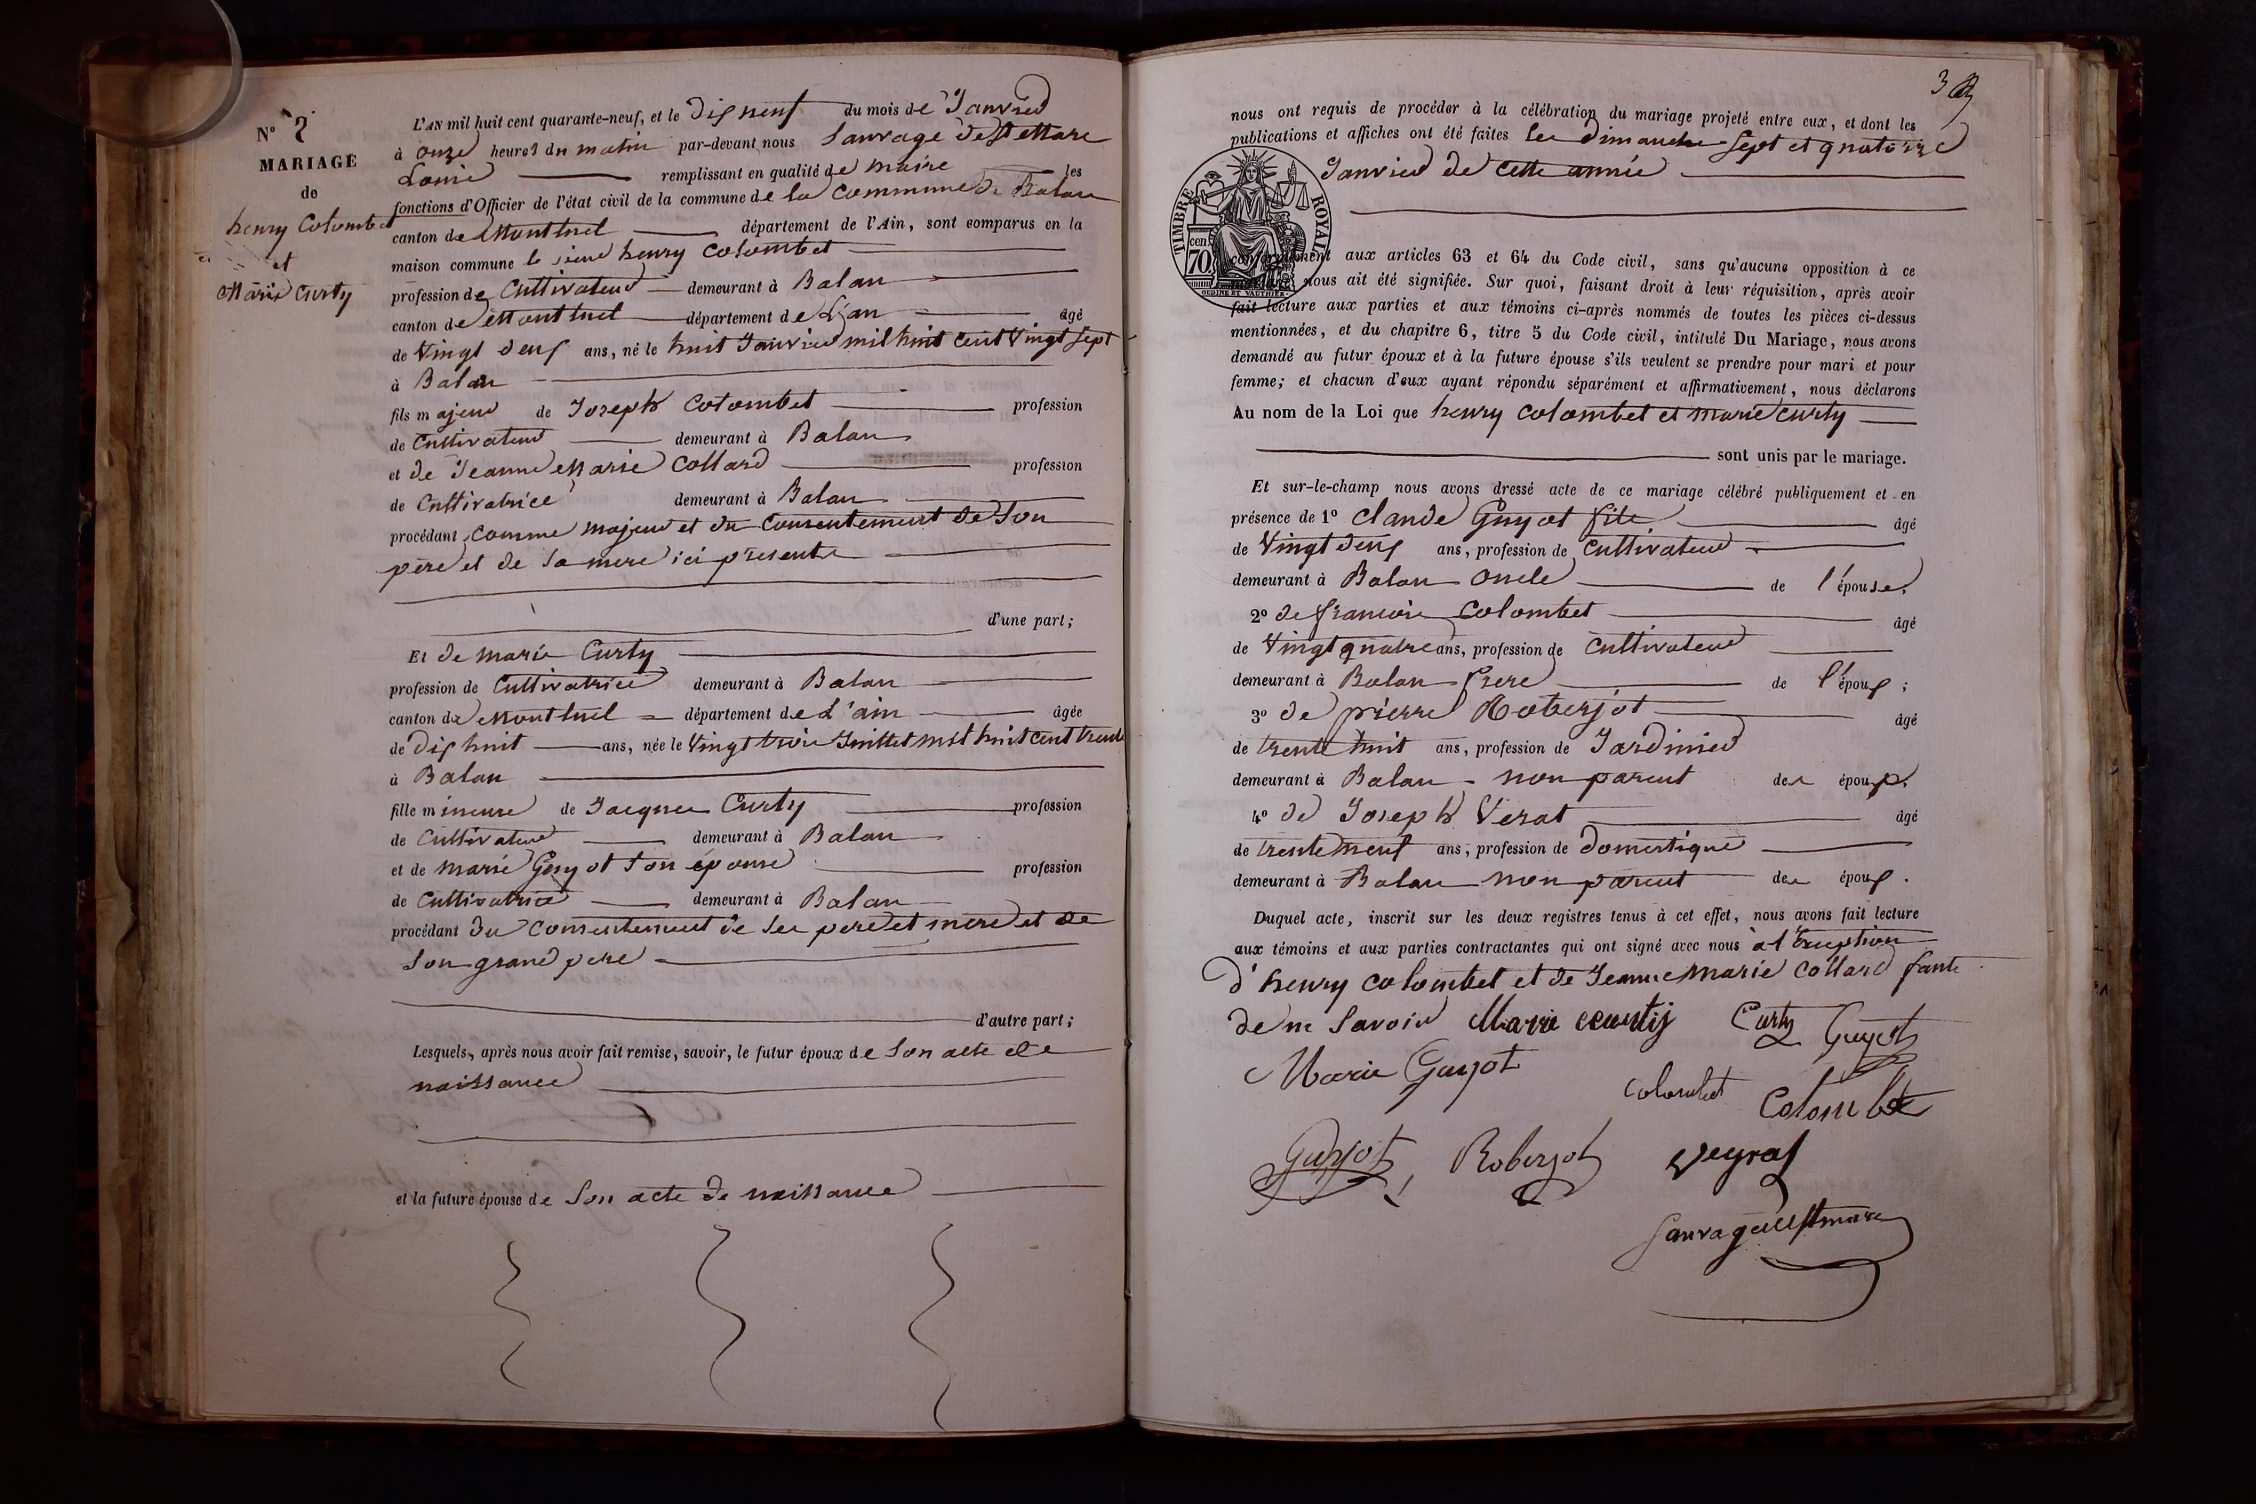 N° 2
MARIAGE
de
henry Colombet
et
Marie Curty
L'AN mil huit cent quarante-neuf, et le dix neuf du mois de Janvier
à onze heures du matin par-devant nous Sauvage de St Mare
Louis remplissant en qualité de maire les
fonctions d'Officier de l'état civil de la commune de la commune de Balan
canton de Montluel département de l'Ain, sont comparus en la
maison commune le sieur henry Colombet
profession de Cultivateur demeurant à Balan
canton de Montluel département de L'ain âgé
de Vingt deux ans, né le huit Janvier mil huit cent Vingt sept
à Balan
fils majeur de Joseph Colombet profession
de Cultivateur demeurant à Balan
et de Jeanne Marie Collard profession
de Cultivatrice demeurant à Balan
procédant comme majeur et du Consentement de son
père et de sa mere ici présents
d'une part;
Et de marie Curty
profession de Cultivatrice demeurant à Balan
canton de Montluel département de L'ain âgée
de dix huit ans, née le Vingt trois Juillet mil huit cent trente
à Balan
fille mineure de Jacques Curty profession
de Cultivateur demeurant à Balan
et de marie Guyot son épouse profession
de Cultivatrice demeurant à Balan
procédant du Consentement de ses pere et mere et de
son grand pere
d'autre part;
Lesquels, après nous avoir fait remise, savoir, le futur époux de son acte de
naissance
et la future épouse de son acte de naissance
3
nous ont requis de procéder à la célébration du mariage projeté entre eux, et dont les
publications et affiches ont été faites les Dimanches sept et quatorze
Janvier de cette année
TIMBRE ROYAL
70 cen
OUDINE ET VAUTHIER
conformément aux articles 63 et 64 du Code civil, sans qu'aucune opposition à ce
mariage nous ait été signifiée. Sur quoi, faisant droit à leur réquisition, après avoir
fait lecture aux parties et aux témoins ci-après nommés de toutes les pièces ci-dessus
mentionnées, et du chapitre 6, titre 5 du Code civil, intitulé Du Mariage, nous avons
demandé au futur époux et à la future épouse s'ils veulent se prendre pour mari et pour
femme; et chacun d'eux ayant répondu séparément et affirmativement, nous déclarons
Au nom de la Loi que henry Colombet et marie Curty
sont unis par le mariage.
Et sur-le-champ nous avons dressé acte de ce mariage célébré publiquement et en
présence de 1° Claude Guyot fils âgé
de Vingt deux ans, profession de Cultivateur
demeurant à Balan oncle de l'épouse
2° de francois Colombet âgé
de Vingt quatre ans, profession de Cultivateur
demeurant à Balan frere de l'époux;
3° de pierre Roberjot âgé
de trente huit ans, profession de Jardinier
demeurant à Balan non parent des époux.
4° de Joseph Verat âgé
de trente neuf ans, profession de Domestique
demeurant à Balan non parent des époux.
Duquel acte, inscrit sur les deux registres tenus à cet effet, nous avons fait lecture
aux témoins et aux parties contractantes qui ont signé avec nous à l'Exeption
d'henry Colombet et de Jeanne marie Collard faute
de ne savoir Marie Courtij Curty Guyot
Marie Guyot
Colombet Colombet
Guyot Roberjot Veyrat